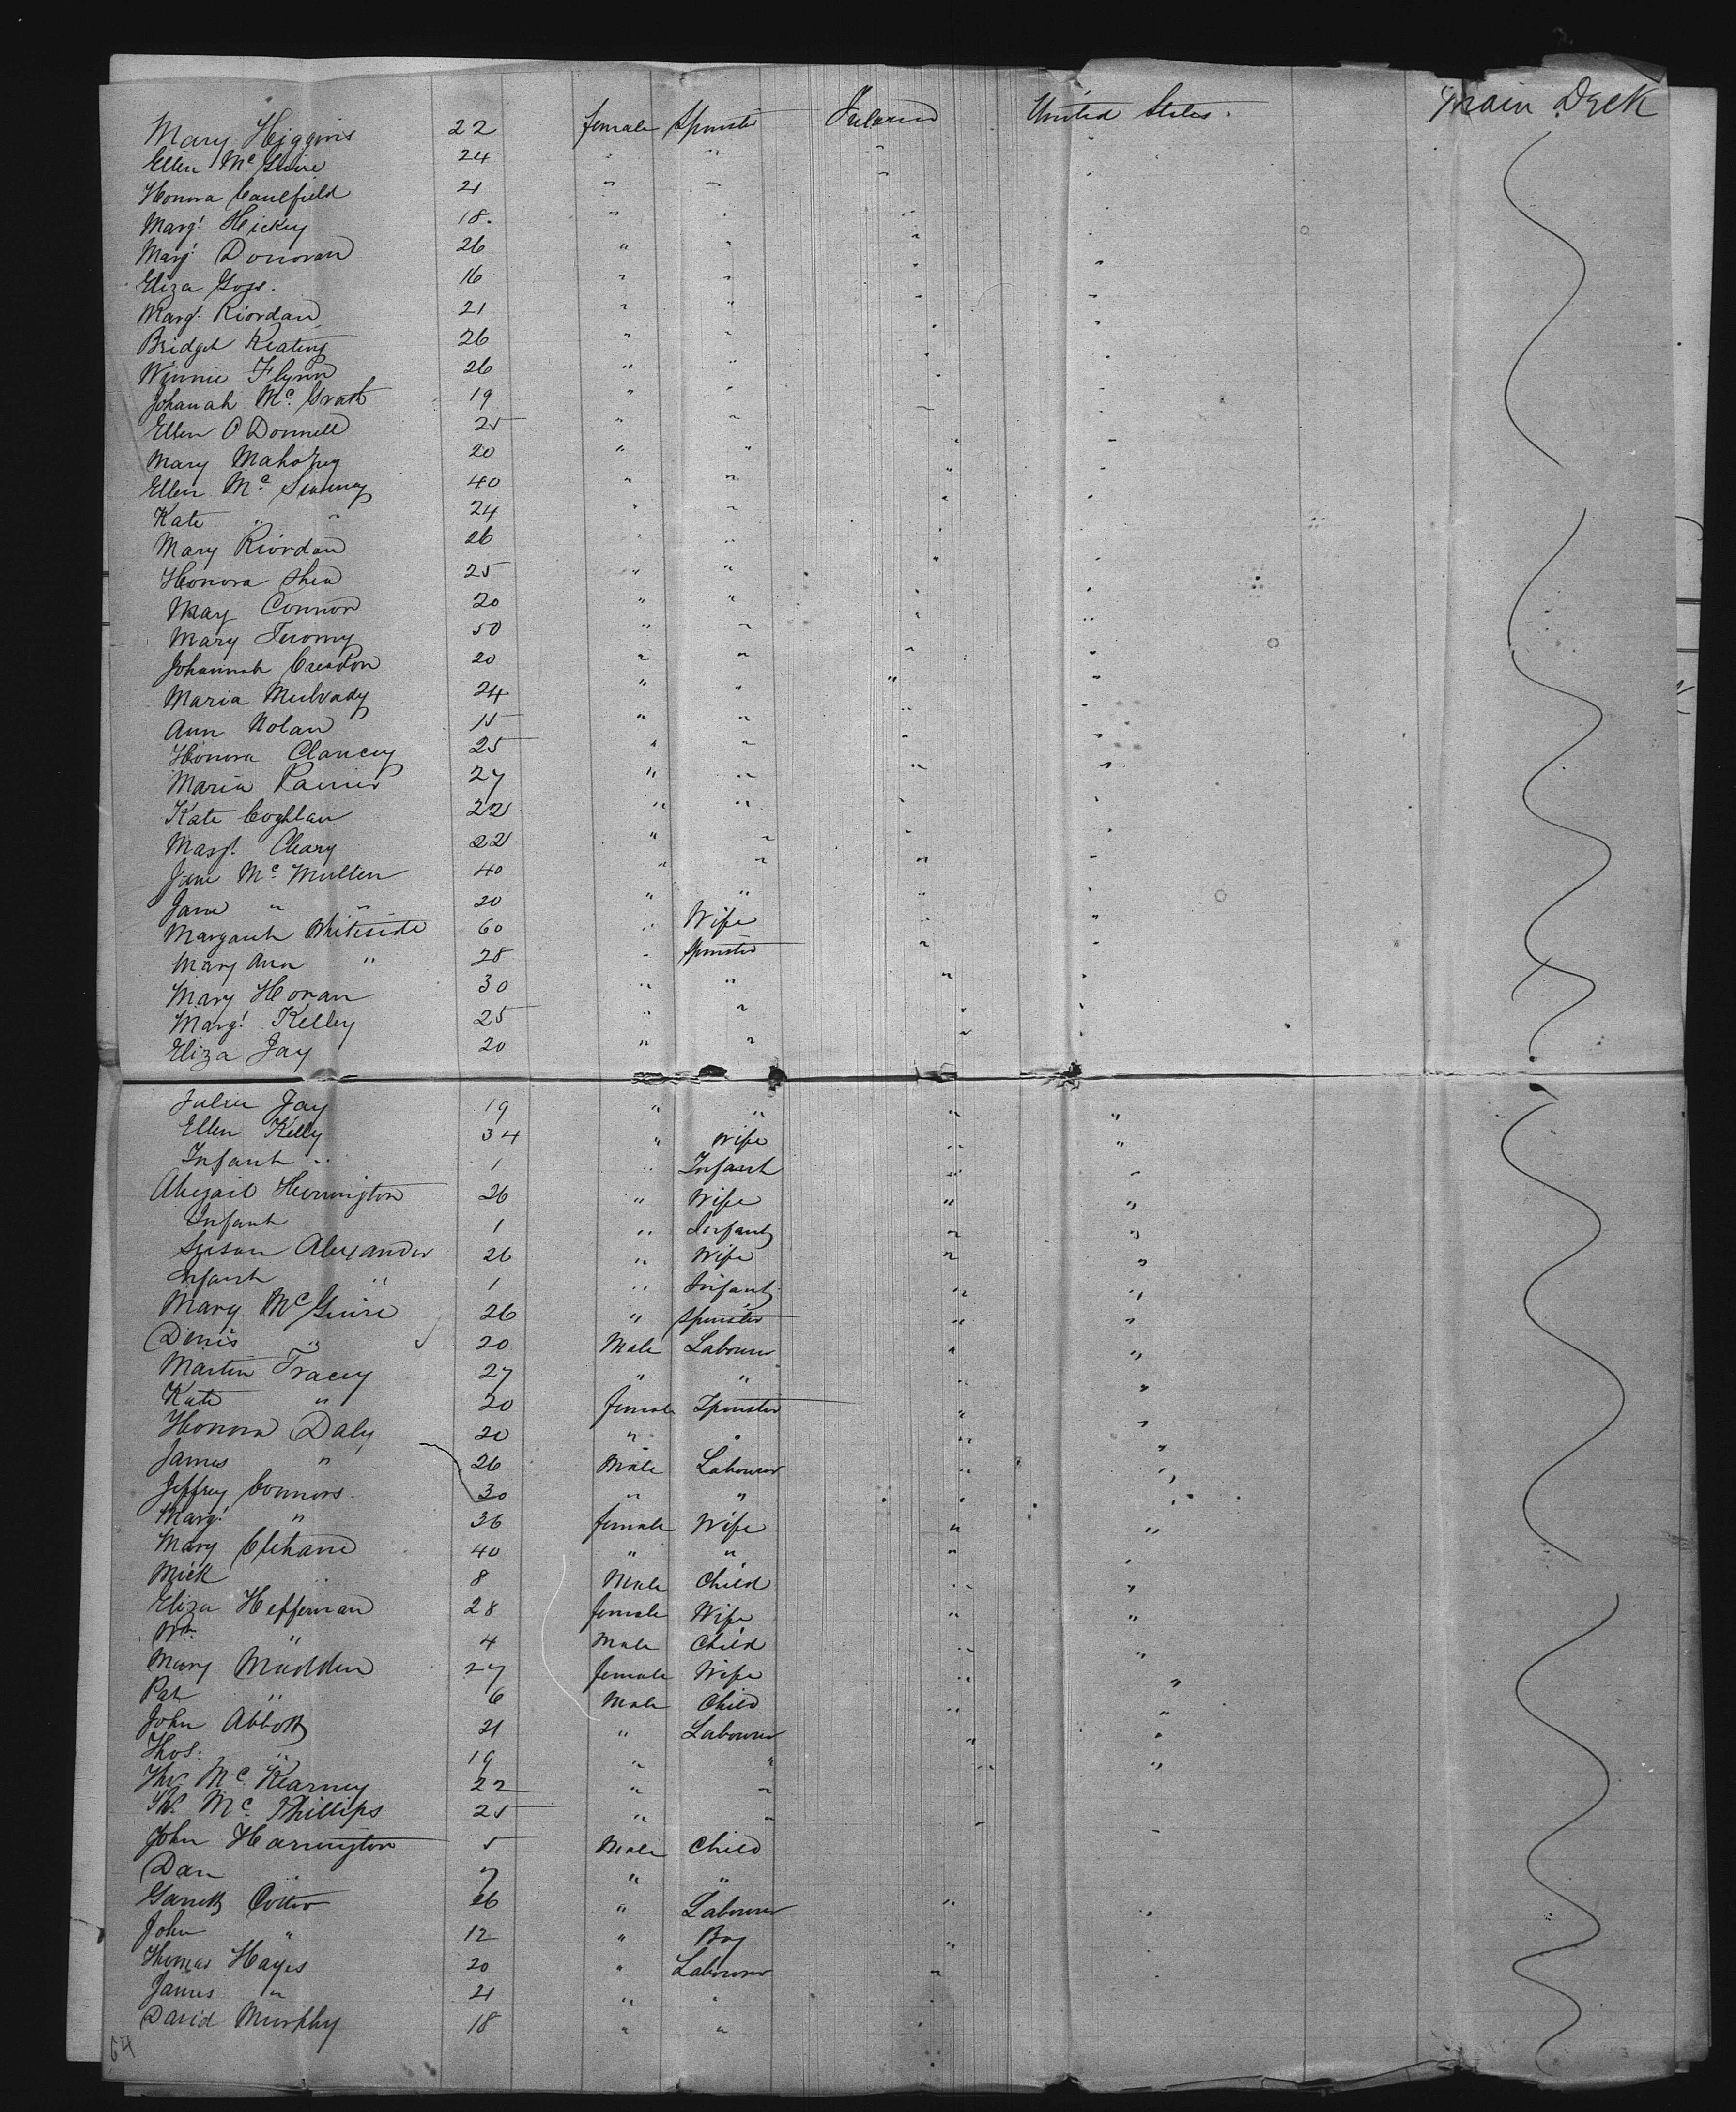 Mary Higgins 22 female Spinster Ireland United States. Main Deck
Ellen Mc Guire 24 " " " "
Honora Caulfield 21 " " " "
Margt Hickey 18. " " " "
Margt Donovan 26 " " " "
Eliza 16 " " " "
Margt Riordan 21 " " " "
Bridget Keating 26 " " " "
Winnie Flynn 26 " " " "
Johanah Mc Grath 19 " " " "
Ellen O Donnell 25 " " " "
Mary Mahoney 20 " " " "
Ellen Mc Swiney 40 " " " "
Kate " " 24 " " " "
Mary Riordan 26 " " " "
Honora Shea 25 " " " "
May Connor 20 " " " "
Mary Twomy 50 " " " "
Johannah Creedon 20 " " " "
Maria Mulvady 24 " " " "
Ann Nolan 15 " " " "
Honora Clancey 25 " " " "
Maria 27 " " " "
Kate Coghlan 22 " " " "
Margt Cleary 22 " " " "
Jane Mc Mullen 40 " " " "
Jane " " 20 " " " "
Margaret Whiteside 60 " Wife " "
Mary Ann " 28 " Spinster " "
Mary Horan 30 " " " "
Margt Kelley 25 " " " "
Eliza Jay 20 " " " "
Julia Jay 19 " " " "
Ellen Kelly 34 " Wife " "
Infant " 1 " Infant " "
Abegail Herrington 26 " Wife " "
Infant 1 " Infant " "
Susan Alexander 26 " Wife " "
Infant " 1 " Infant " "
Mary McGuire 26 " Spinster " "
Denis " 20 Male Labourer " "
Martin Tracey 27 " " " "
Kate " 20 female Spinster " "
Honora Daly 20 " " " "
James " 26 Male Labourer " "
Jeffrey Connors 30 " " " "
Margt " 36 female Wife " "
Mary Clehane 40 " " " "
Mick 8 Male Child " "
Eliza Heffernan 28 female Wife " "
Wm " 4 Male Child " "
Mary Madden 27 female Wife " "
Pat " 6 Male Child " "
John Abbott 21 " Labourer " "
Thos: " 19 " " " "
Mc Kearney 22 " "
Mc Phillips 25 " " "
John Harrington 5 Male Child
Dan " 7 " "
Garrett Cotter 26 " Labourer " "
John " 12 " Boy "
Thomas Hayes 20 " Labourer "
James " 21 " " "
David Murphy 18 " " "
64